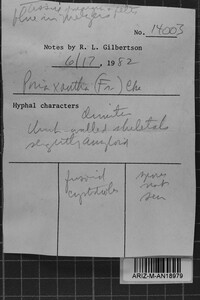 No. 14003
Notes by R. L. Gilbertson
6/17, 1982
Poria xantha (Fr.) Cke
Hyphal characters
dimitic
skeletals
slightly amyloid
fusoid
cystidioles
spores
not
seen
ARIZ-M-AN18979